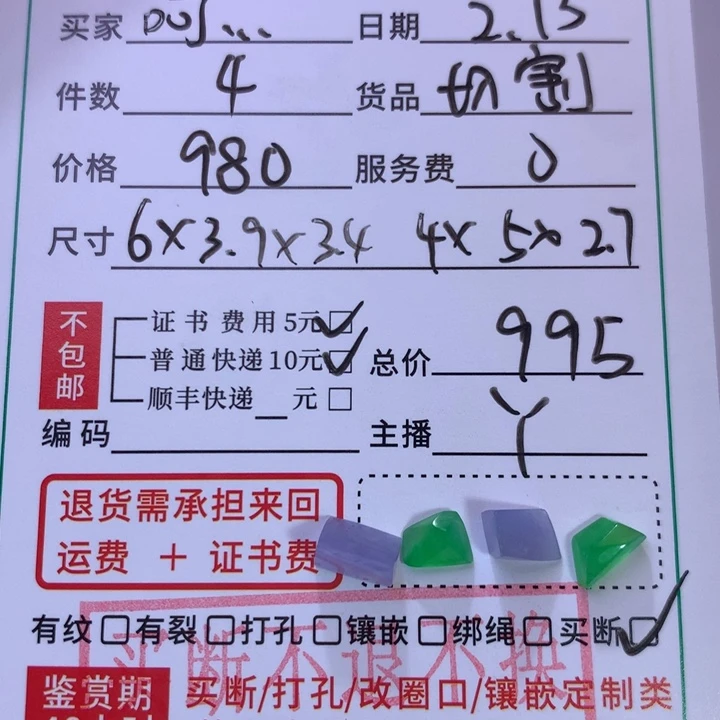 买家 呵... 日期 2.15
件数 4 货品 切割
价格 980 服务费 0
尺寸 6×3.9×3.4 4×5×2.7
不包邮
证书费用5元☑
普通快递10元☑ 总价 995
顺丰快递__元□
编码 主播 丫
退货需承担来回
运费 + 证书费
有纹□有裂□打孔□镶嵌□绑绳□买断☑
买断不退不换
鉴赏期 买断/打孔/改圈口/镶嵌定制类